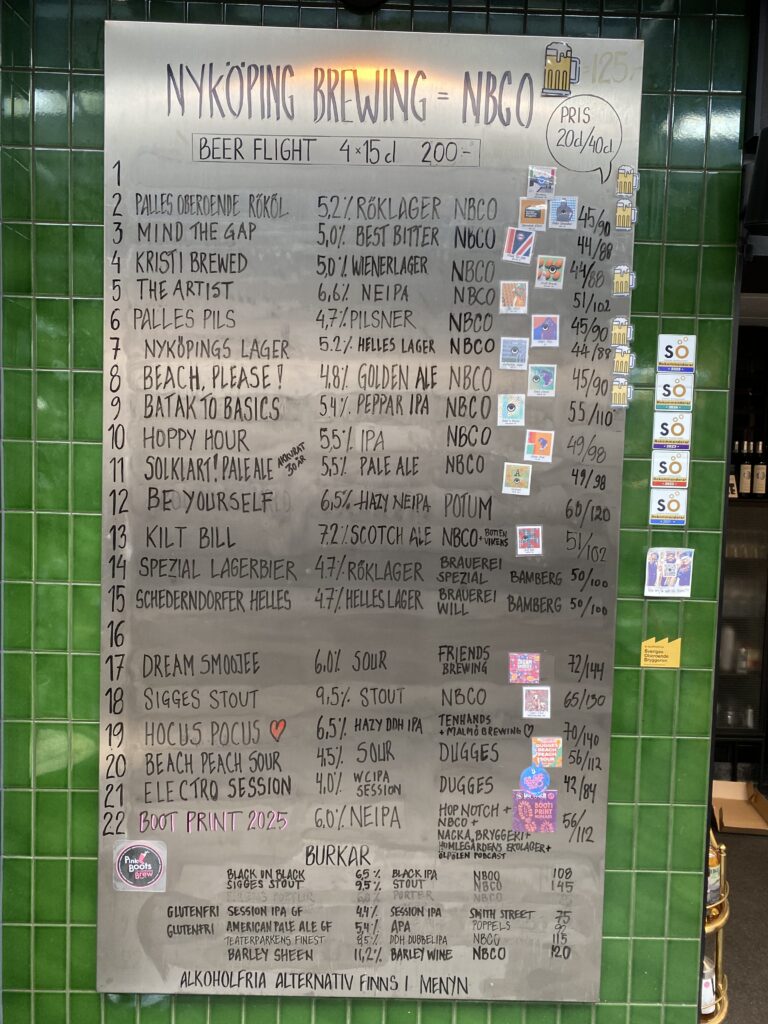 NYKÖPING BREWING = NBCO
125:-
PRIS 20cl/40cl
BEER FLIGHT 4×15cl 200-
1
2 PALLES OBEROENDE RÖKÖL 5,2% RÖKLAGER NBCO 45/90
3 MIND THE GAP 5,0% BEST BITTER NBCO 44/88
4 KRISTI BREWED 5,0% WIENERLAGER NBCO 44/88
5 THE ARTIST 6,6% NEIPA NBCO 51/102
6 PALLES PILS 4,7% PILSNER NBCO 45/90
7 NYKÖPINGS LAGER 5.2% HELLES LAGER NBCO 44/88
8 BEACH, PLEASE! 4.8% GOLDEN ALE NBCO 45/90
9 BATAK TO BASICS 5,4% PEPPAR IPA NBCO 55/110
10 HOPPY HOUR 5,5% IPA NBCO 49/98
11 SOLKLART! PALE ALE AKKURAT 30 ÅR 5,5% PALE ALE NBCO 49/98
12 BE YOURSELF 6,5% HAZY NEIPA POTUM 60/120
13 KILT BILL 7.2% SCOTCH ALE NBCO + BOTTEN VIKENS 51/102
14 SPEZIAL LAGERBIER 4.7% RÖKLAGER BRAUEREI SPEZIAL BAMBERG 50/100
15 SCHEDERNDORFER HELLES 4.7% HELLES LAGER BRAUEREI WILL BAMBERG 50/100
16
17 DREAM SMOOJEE 6,0% SOUR FRIENDS BREWING 72/144
18 SIGGES STOUT 9,5% STOUT NBCO 65/130
19 HOCUS POCUS 6,5% HAZY DDH IPA TENHANDS + MALMÖ BREWING 70/140
20 BEACH PEACH SOUR 4,5% SOUR DUGGES 56/112
21 ELECTRO SESSION 4,0% WCIPA SESSION DUGGES 42/84
22 BOOT PRINT 2025 6,0% NEIPA HOP NOTCH + NBCO + NACKA BRYGGERI + HUMLEGÅRDENS EKOLAGER + ÖLPÖLEN PODCAST 56/112
BURKAR
BLACK ON BLACK 6,5% BLACK IPA NBCO 108
SIGGES STOUT 9,5% STOUT NBCO 145
PORTER NBCO
GLUTENFRI SESSION IPA GF 4,4% SESSION IPA SMITH STREET 75
GLUTENFRI AMERICAN PALE ALE GF 5,4% APA POPPELS
TEATERPARKENS FINEST 8,5% DDH DUBBELIPA NBCO 115
BARLEY SHEEN 11,2% BARLEY WINE NBCO 120
ALKOHOLFRIA ALTERNATIV FINNS I MENYN
Pink Boots Brew
DREAM SMOOJEE
DUGGES BEACH PEACH SOUR
BOOT PRINT
SÖ
SÖ
SÖ
SÖ
SÖ
Sveriges Oberoende Bryggerier